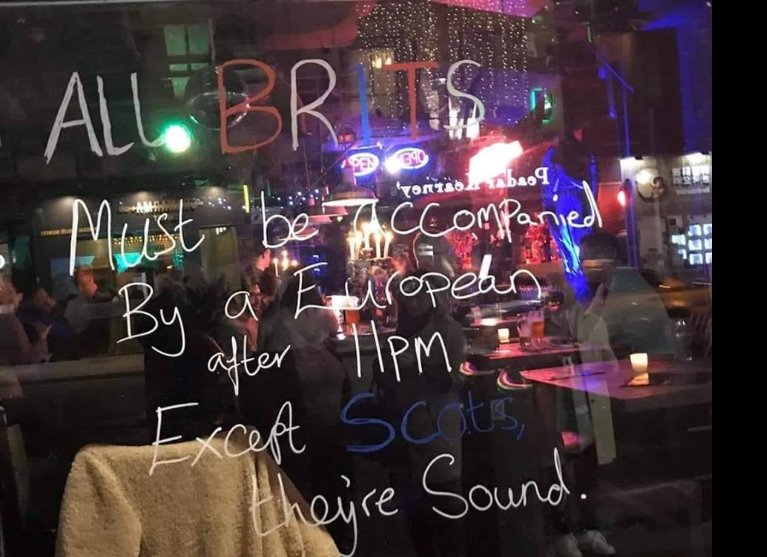 ALL BRITS
OPEN
OPEN
Peadar Kearney's
Must be accompanied
By a European
after 11PM
Except Scots,
they're Sound.